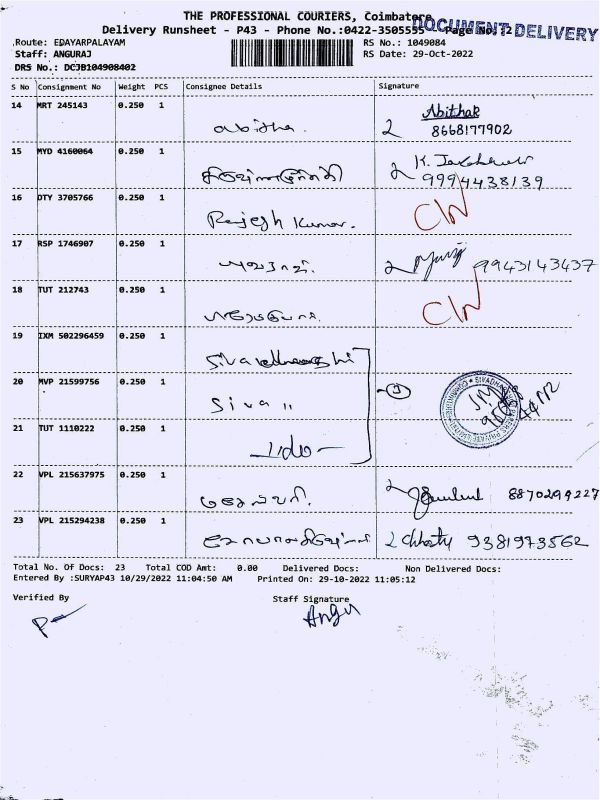 THE PROFESSIONAL COURIERS, Coimbatore
DOCUMENT DELIVERY
Delivery Runsheet - P43 - Phone No.:0422-3505555 - Page No.:2
Route: EDAYARPALAYAM RS No.: 1049084
Staff: ANGURAJ RS Date: 29-Oct-2022
DRS No.: DCJB104908402
S No Consignment No Weight PCS Consignee Details Signature
14 MRT 245143 0.250 1 Abitha. 2 Abithak
8668177902
15 MYD 4160064 0.250 1 2 K.
9994438139
16 DTY 3705766 0.250 1 Rajesh Kumar. C/N
17 RSP 1746907 0.250 1 யுவராஜ். 2 9943143437
18 TUT 212743 0.250 1 C/N
19 IXM 502296459 0.250 1
20 MVP 21599756 0.250 1 Siva 11 3
21 TUT 1110222 0.250 1 -1/do-
22 VPL 215637975 0.250 1 2 8870299227
23 VPL 215294238 0.250 1 2 9381973562
Total No. Of Docs: 23 Total COD Amt: 0.00 Delivered Docs: Non Delivered Docs:
Entered By :SURYAP43 10/29/2022 11:04:50 AM Printed On: 29-10-2022 11:05:12
Verified By Staff Signature
Angu